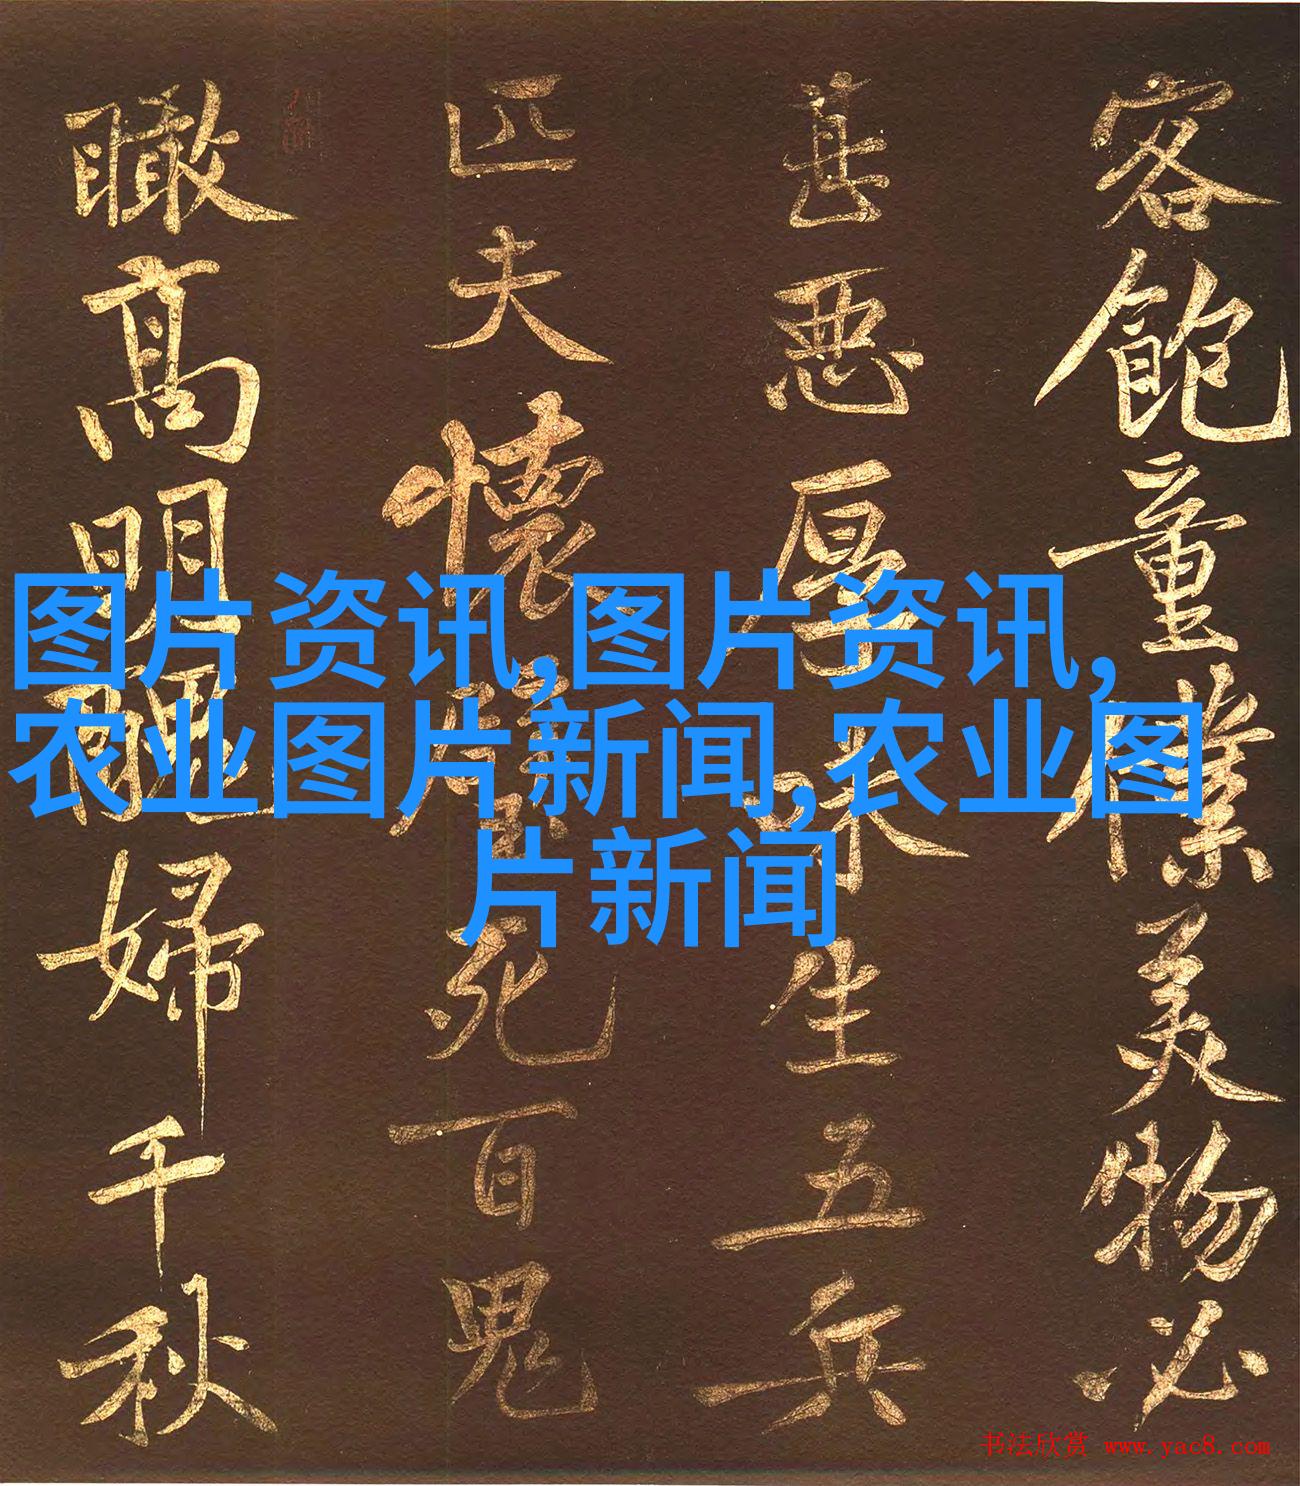 客飽童僕美物必
甚惡厚味生五兵
匹夫懷璧死百鬼
瞰高明醜婦千秋
图片资讯,图片资讯,
农业图片新闻,农业图
片新闻
书法欣赏 www.yac8.com